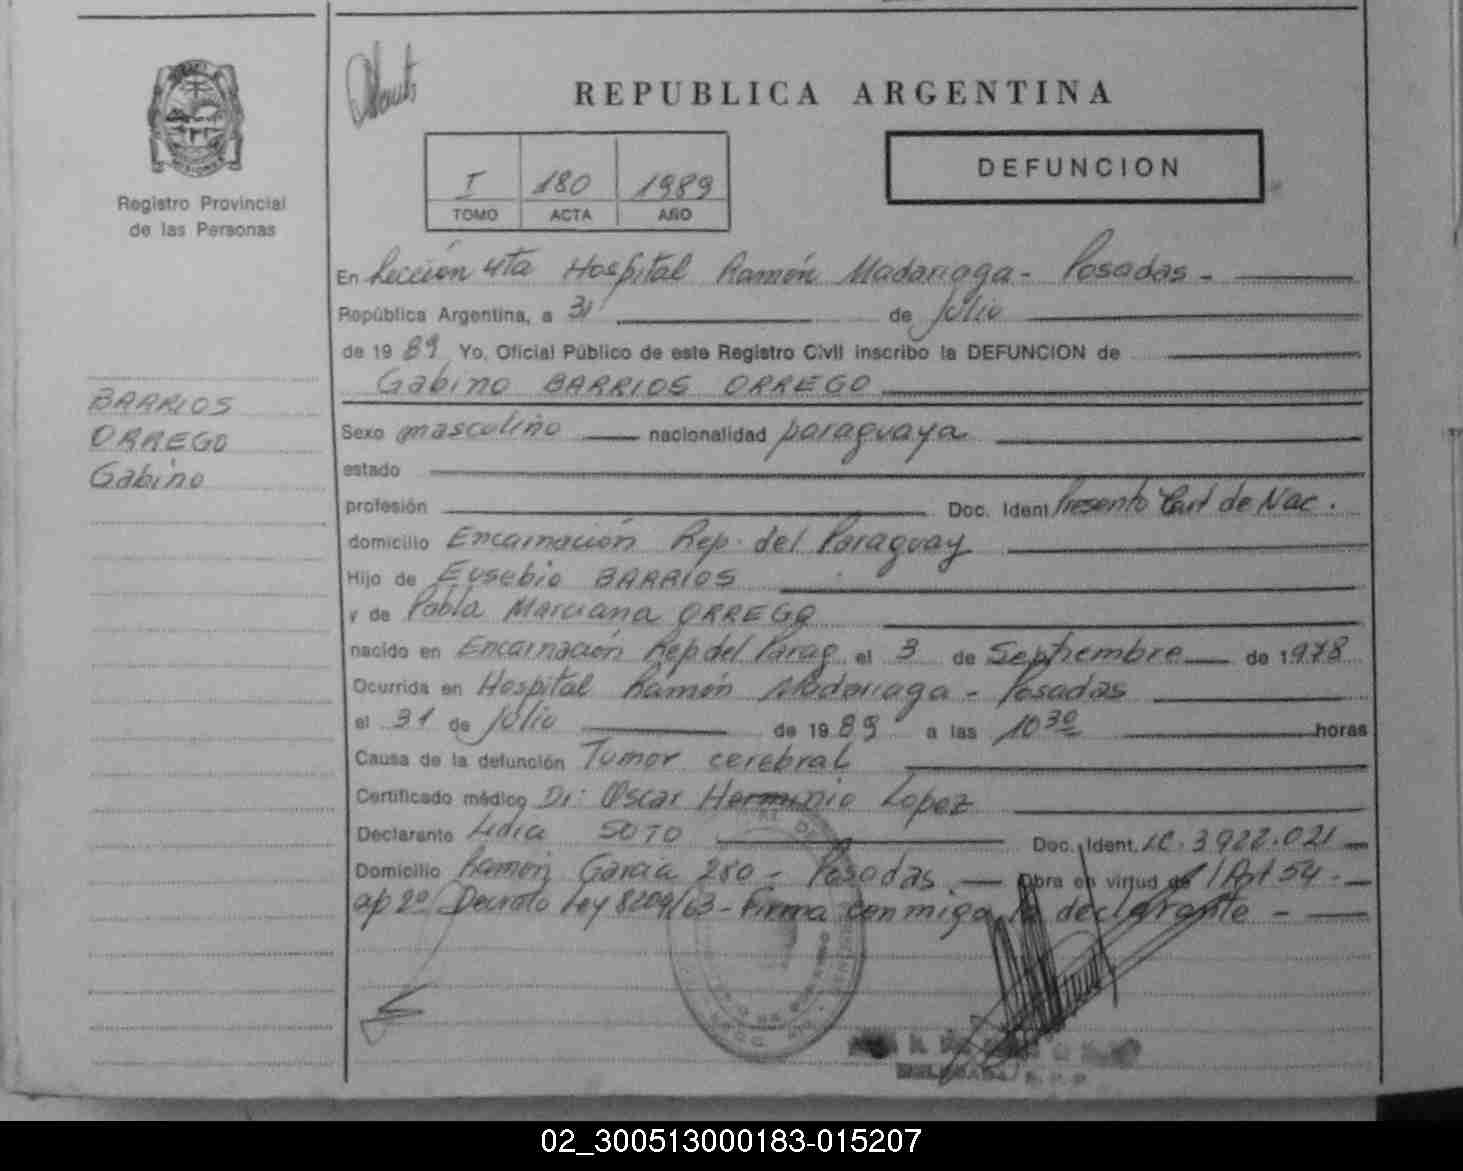 REPUBLICA ARGENTINA
Registro Provincial
de las Personas
I 180 1989
TOMO ACTA AÑO
DEFUNCION
BARRIOS
ORREGO
Gabino
En Sección 4ta Hospital Ramón Madariaga - Posadas -
República Argentina, a 31 de Julio
de 19 89 Yo, Oficial Público de este Registro Civil inscribo la DEFUNCION de
Gabino BARRIOS ORREGO
Sexo masculino nacionalidad paraguaya
estado
profesión Doc. Ident Presento Cert de Nac.
domicilio Encarnación Rep. del Paraguay
Hijo de Eusebio BARRIOS
y de Pabla Marciana ORREGO
nacido en Encarnación Rep del Parag. el 3 de Septiembre de 1978
Ocurrida en Hospital Ramón Madariaga - Posadas
el 31 de Julio de 19 89 a las 10 30 horas
Causa de la defunción Tumor cerebral
Certificado médico Dr: Oscar Herminio Lopez
Declarante Lidia SOTO Doc. Ident. LC. 3.922.021
Domicilio Ramón Garcia 280 - Posadas. Obra en virtud de l Art 54 -
ap 2º Decreto Ley 8204/63 - Firma conmigo la declarante -
02_300513000183-015207